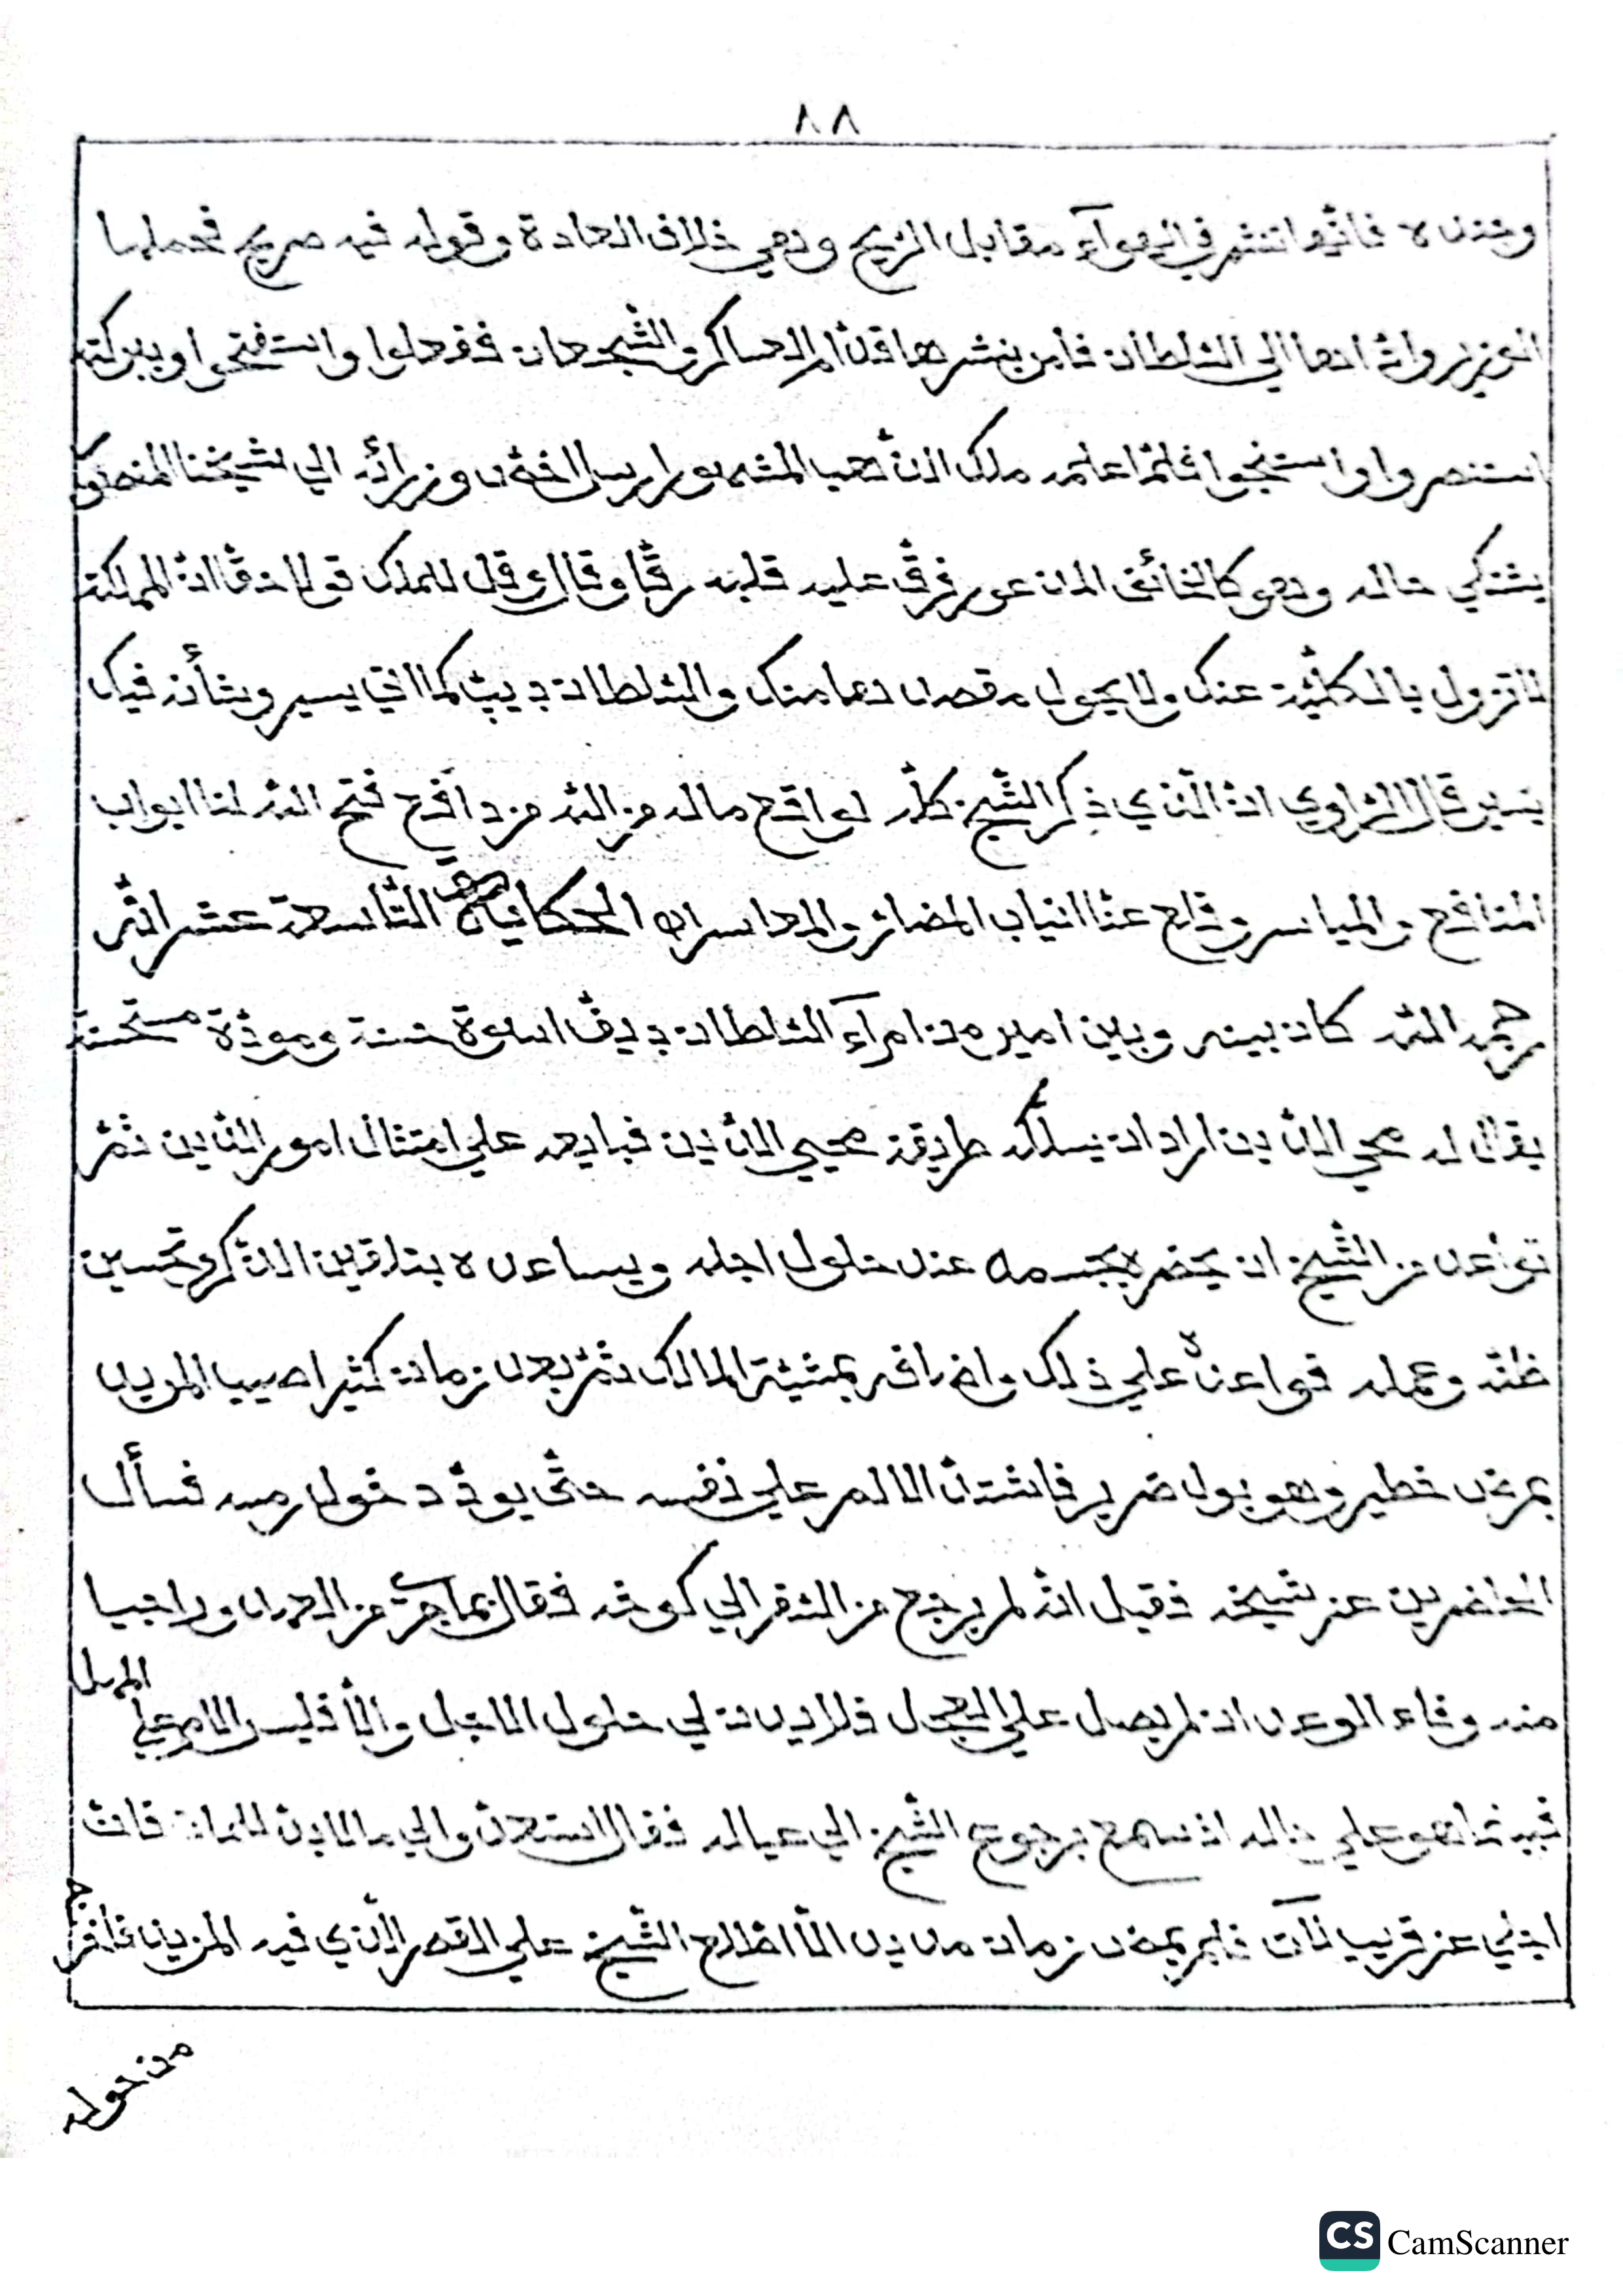 ٨٨
وجنده فانّها تنشر في الهوآء مقابل الرّيح وهي خلاف العادة وقوله فيه صريح فحملها
العزيز واتٰها الي السّلطان فامر بنشرها قدّام العساكر والشّجعان ففعلوا واستفتحوا وببركته
استنصروا واستنجوا فلمّا علمه ملك الذّهب المشهور ارسل وزرائه الي شيخنا
يشتكي حاله وهو كالخائف المذعور فرقّ عليه قلبه رقّا وقال قل للملك قولا حقّا انّ المملكة
لا تزول بالكلّيّة عنك ولا يحول مقصدها منك والسّلطان ديپ كما اني يسير وشأنه فيك
يسير قال الرّاوي انّ الّذي ذكر الشّيخ كلّه لواقع ماله من الله من دافع فتح الله لنا ابواب
المنافع والمياسر وقلع عنّا انياب المضائر والمعاسر الحكاية التّاسعة عشر انّه
رحمه الله كان بينه وبين امير من امرآء السّلطان ديڤ اسوة حسنة ومودّة مستحسنة
يقال له محي الدّين اراد ان يسلك طريقة محيي الدّين فبايعه علي امتثال امور الدّين ثمّ
تواعد من الشّيخ ان يحضره بجسمه عند حلول اجله ويساعده بتلقين الذّكر وتحسين
ظنّه وعمله فواعده علي ذلك واضافه بمشيّة المالك ثمّ بعد زمان كثير اصيب المريد
بمرض خطير وهو بول ضرير فاشتدّ الالم علي نفسه حتّي يودّ دخول رمسه فسأل
الحاضرين عن شيخه فقيل انّه لم يرجع من السّفر الي كوخه فقال بما جري من العهد وراجيا
منه وفاء الوعد ان لم يصل علي العجل فلا يدن لي حلول الاجل والّا فليس الامر علي المهل
فبينما هو علي حاله اذ سمع برجوع الشّيخ الي عياله فقال استعدّوا لي ما لا بدّ للمات فانّ
اجلي عن قريب لآت فلم يمض زمان مديد الّا اطّلع الشّيخ علي القصر الّذي فيه المريد فافرج
من حوله
CS CamScanner